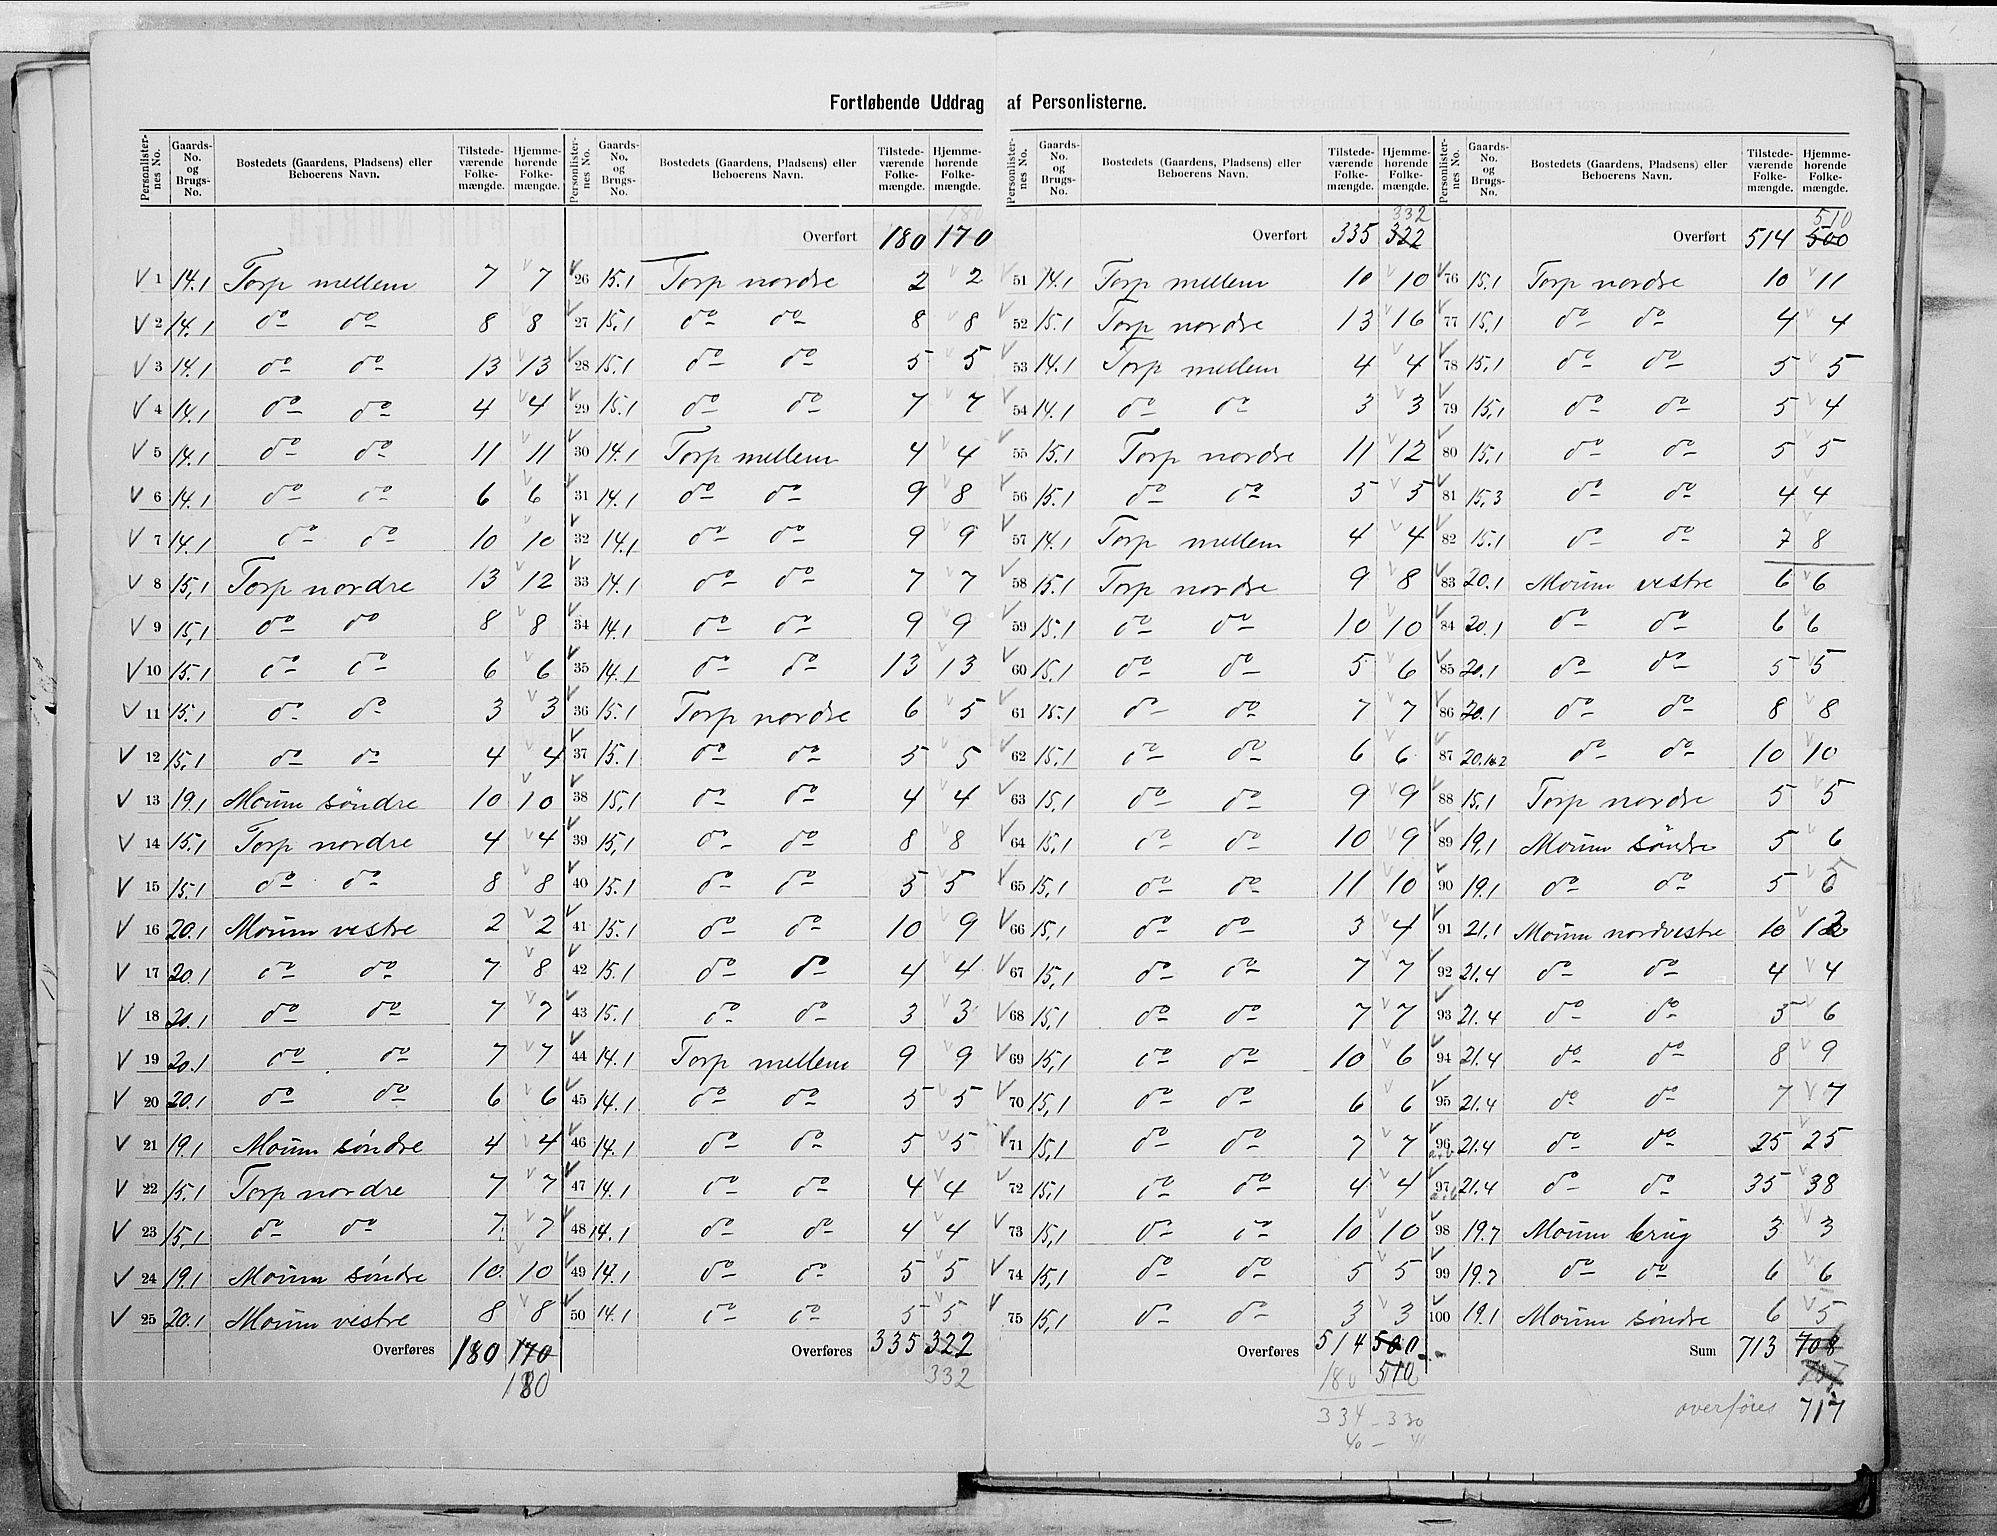 Fortløbende Uddrag af Personlisterne.
Personlisternes No. | Gaards-No. og Brugs-No. | Bostedets (Gaardens, Pladsens) eller Beboerens Navn. | Tilstedeværende Folkemængde. | Hjemmehørende Folkemængde.
V 1 14.1 Torp mellem 7 7
V 2 14.1 do do 8 8
V 3 14.1 do do 13 13
V 4 14.1 do do 4 4
V 5 14.1 do do 11 11
V 6 14.1 do do 6 6
V 7 14.1 do do 10 10
V 8 15.1 Torp nordre 13 12
V 9 15.1 do do 8 8
V 10 15.1 do do 6 6
V 11 15.1 do do 3 3
V 12 15.1 do do 4 4
V 13 19.1 Moum søndre 10 10
V 14 15.1 Torp nordre 4 4
V 15 15.1 do do 8 8
V 16 20.1 Moum vestre 2 2
V 17 20.1 do do 7 8
V 18 20.1 do do 7 7
V 19 20.1 do do 7 7
V 20 20.1 do do 6 6
V 21 19.1 Moum søndre 4 4
V 22 15.1 Torp nordre 7 7
V 23 15.1 do do 7 7
V 24 19.1 Moum søndre 10 10
V 25 20.1 Moum vestre 8 8
Overføres 180 170
180
Personlisternes No. | Gaards-No. og Brugs-No. | Bostedets (Gaardens, Pladsens) eller Beboerens Navn. | Tilstedeværende Folkemængde. | Hjemmehørende Folkemængde.
180
Overført 180 170
V 26 15.1 Torp nordre 2 2
V 27 15.1 do do 8 8
V 28 15.1 do do 5 5
V 29 15.1 do do 7 7
V 30 14.1 Torp mellem 4 4
V 31 14.1 do do 9 8
V 32 14.1 do do 9 9
V 33 14.1 do do 7 7
V 34 14.1 do do 9 9
V 35 14.1 do do 13 13
V 36 15.1 Torp nordre 6 5
V 37 15.1 do do 5 5
V 38 15.1 do do 4 4
V 39 15.1 do do 8 8
V 40 15.1 do do 5 5
V 41 15.1 do do 10 9
V 42 15.1 do do 4 4
V 43 15.1 do do 3 3
V 44 14.1 Torp mellem 9 9
V 45 14.1 do do 5 5
V 46 14.1 do do 5 5
V 47 14.1 do do 4 4
V 48 14.1 do do 4 4
V 49 14.1 do do 5 5
V 50 14.1 do do 5 5
Overføres 335 322
332
Personlisternes No. | Gaards-No. og Brugs-No. | Bostedets (Gaardens, Pladsens) eller Beboerens Navn. | Tilstedeværende Folkemængde. | Hjemmehørende Folkemængde.
332
Overført 335 322
V 51 14.1 Torp mellem 10 10
V 52 15.1 Torp nordre 13 16
V 53 14.1 Torp mellem 4 4
V 54 14.1 do do 3 3
V 55 15.1 Torp nordre 11 12
V 56 15.1 do do 5 5
V 57 14.1 Torp mellem 4 4
V 58 15.1 Torp nordre 9 8
V 59 15.1 do do 10 10
V 60 15.1 do do 5 6
V 61 15.1 do do 7 7
V 62 15.1 do do 6 6
V 63 15.1 do do 9 9
V 64 15.1 do do 10 9
V 65 15.1 do do 11 10
V 66 15.1 do do 3 4
V 67 15.1 do do 7 7
V 68 15.1 do do 7 7
V 69 15.1 do do 10 6
V 70 15.1 do do 6 6
V 71 15.1 do do 7 7
V 72 15.1 do do 4 4
V 73 15.1 do do 10 10
V 74 15.1 do do 5 5
V 75 15.1 do do 3 3
Overføres 514 500
180 510
334 - 330
40 - 41
Personlisternes No. | Gaards-No. og Brugs-No. | Bostedets (Gaardens, Pladsens) eller Beboerens Navn. | Tilstedeværende Folkemængde. | Hjemmehørende Folkemængde.
510
Overført 514 500
V 76 15.1 Torp nordre 10 11
V 77 15.1 do do 4 4
V 78 15.1 do do 5 5
V 79 15.1 do do 5 4
V 80 15.1 do do 5 5
V 81 15.3 do do 4 4
V 82 15.1 do do 7 8
V 83 20.1 Moum vestre 6 6
V 84 20.1 do do 6 6
V 85 20.1 do do 5 5
V 86 20.1 do do 8 8
V 87 20.1&2 do do 10 10
V 88 15.1 Torp nordre 5 5
V 89 19.1 Moum søndre 5 6
V 90 19.1 do do 5 5
V 91 21.1 Moum nordvestre 10 12
V 92 21.4 do do 4 4
V 93 21.4 do do 5 6
V 94 21.4 do do 8 9
V 95 21.4 do do 7 7
V 96 a.b 21.4 do do 25 25
V 97 a.b 21.4 do do 35 38
V 98 19.7 Moum brug 3 3
V 99 19.7 do do 6 6
V 100 19.1 Moum søndre 6 5
Sum 713 708
707
overføres 717